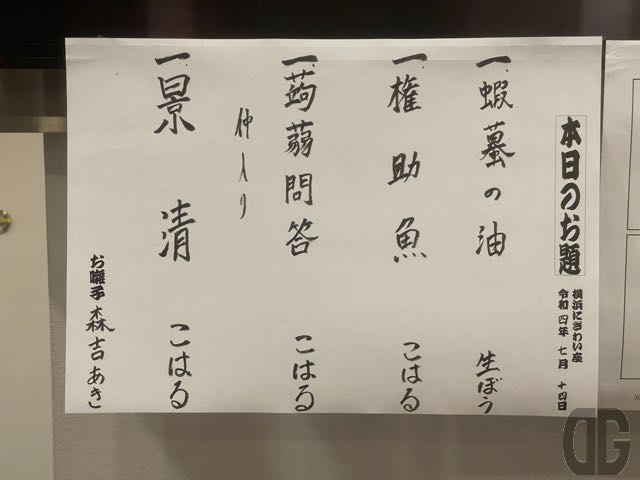 本日のお題
横浜にぎわい座
令和四年 七月 十四日
一、蝦蟇の油 生ぼう
一、権助魚 こはる
一、蒟蒻問答 こはる
仲入り
一、景清 こはる
お囃子 森吉あき
DG